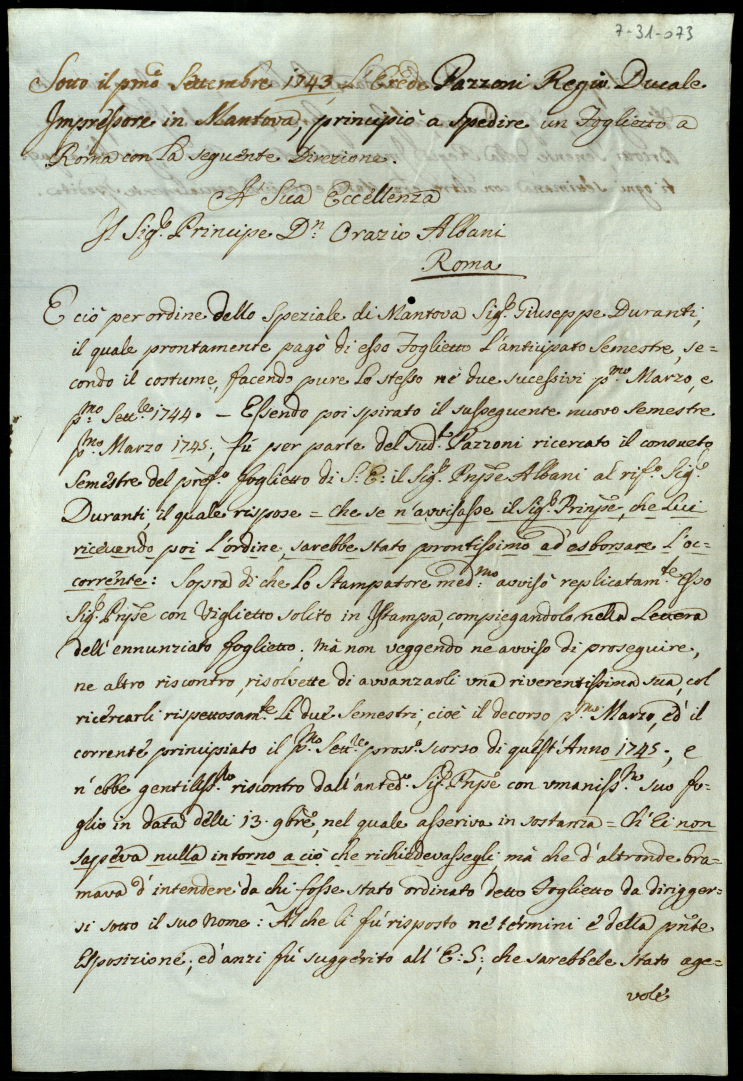 7-31-073
Sotto il pmo Settembre 1743, L'Erede Pazzoni Regio Ducale
Impressore in Mantova, principiò a spedire un Foglietto a
Roma con la seguente Direzione.
A Sua Eccellenza
Il Sigr. Principe Dn. Orazio Albani
Roma
E ciò per ordine dello Speziale di Mantova Sigr. Giuseppe Duranti,
il quale prontamente pagò di esso Foglietto l'anticipato Semestre, se=
condo il costume, facendo pure lo stesso ne' due sucessivi pmo. Marzo, e
pmo. Settbre 1744. — Essendo poi spirato il susseguente nuovo Semestre
pmo. Marzo 1745, fù per parte del sudto. Pazzoni ricercato il consueto
Semestre del prefo. foglietto di S: E: il Sigr. Pnpe Albani al rifo. Sigr.
Duranti, il quale rispose = che se n'avvisasse il Sigr. Prinpe, che Lui
ricevendo poi l'ordine, sarebbe stato prontissimo ad esborsare l'oc=
corrente: Sopra di che lo Stampatore medmo. avvisò replicatamte Esso
Sigr. Pnpe con Viglietto solito in Istampa, compiegandolo nella Lettera
dell'ennunziato foglietto; mà non veggendo ne avviso di proseguire,
ne altro riscontro, risolvette di avvanzarli una riverentissima sua, col
ricercarli rispettosamte. Li due Semestri, cioè il decorso pmo. Marzo, ed il
corrente principiato il pmo. Settre prosso. scorso di quest'Anno 1745, e
n'ebbe gentilissmo riscontro dall'antedo. Sigr. Pnpe con umanissmo suo fo=
glio in data delli 13. 9bre, nel quale asseriva in sostanza = Ch'Ei non
sapeva nulla intorno a ciò che richiedevassegli, mà che d'altronde bra=
mava d'intendere da chi fosse stato ordinato detto Foglietto da dirigger=
si sotto il suo Nome: Al che li fù risposto ne' termini è della pnte
Esposizione; ed anzi fù suggerito all'E: S:, che sarebbele stato age=
vole